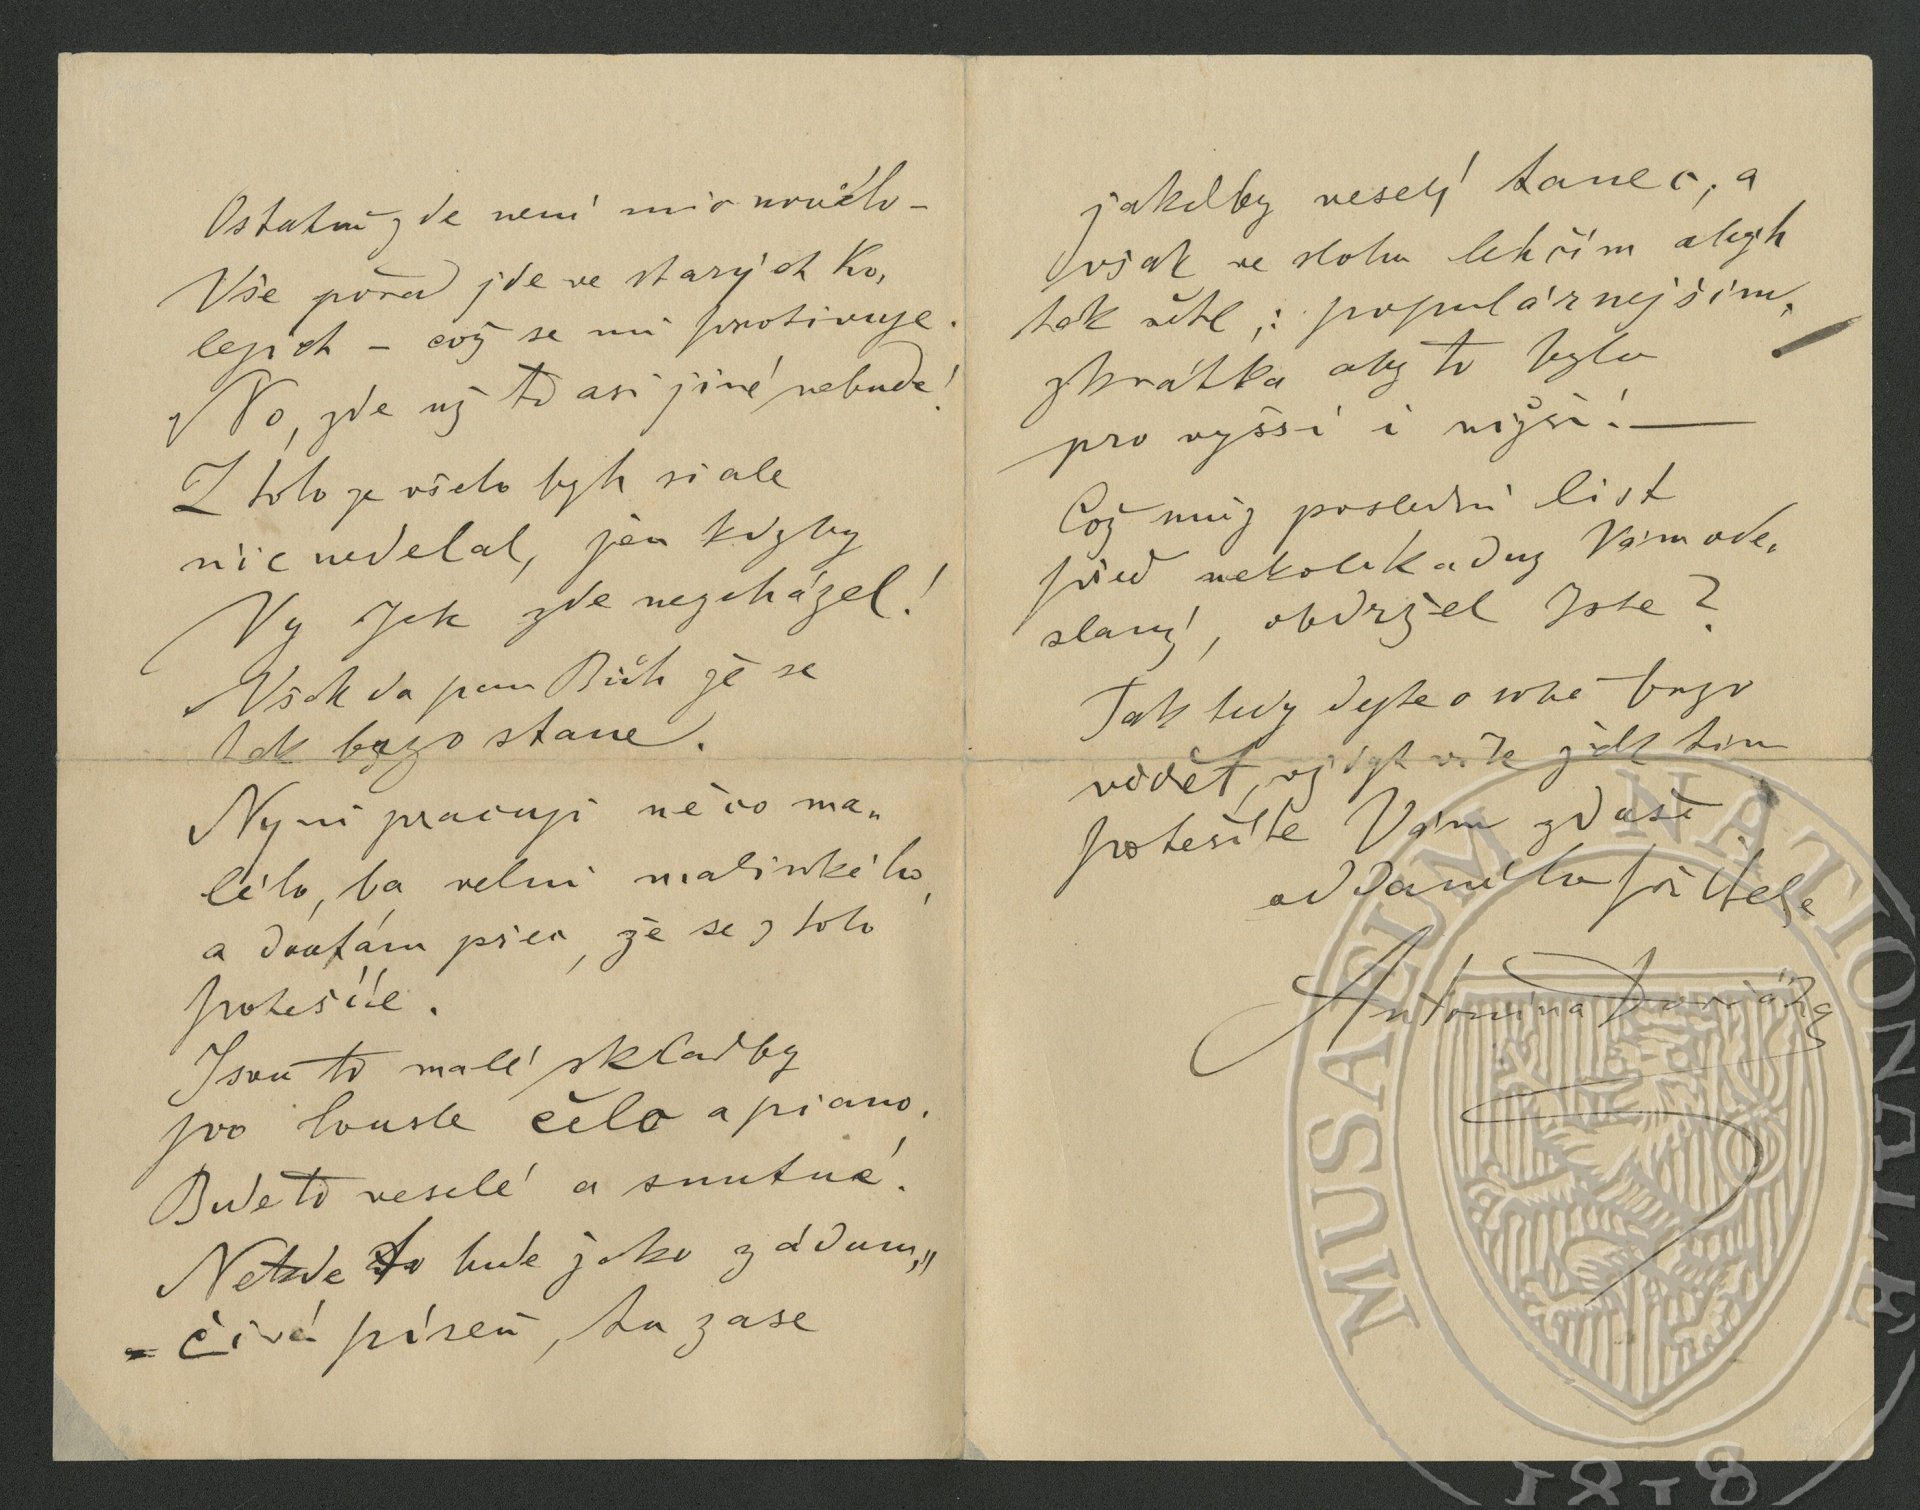 Ostatně zde není nic nového –
Vše pořád jde ve starých ko„
lejích – což se mi protivuje.
No, zde už to asi jiné nebude!
Z toho je všeho bych si ale
nic nedelal, jen kdyby
Vy jste zde nezcházel!
Však da pan Bůh že se
tak brzo stane.
Nyní pracuji něco ma„
lého, ba velmi malinkého,
a doufám přec, že se z toho
potešíte.
Jsou to malé skladby
pro housle čělo a piano.
Bude to veselé a smutné.
Nekde to bude jako zádum„
čivá píseň, tu zase
jakoby veselý tanec, a
však ve slohu lehčím abych
tak řekl, : populárnejším,
zkrátka aby to bylo
pro vyšší i nižší! —
Což můj poslední list
před nekolika dny Vám ode„
slaný, obdržel jste?
Tak tedy dejte o sobě brzo
vědět, vždyt víte jak tím
potešíte Vám zvlaště
oddaného přítele
Antonína Dvořáka
MUSAEUM NATIONALE
1818